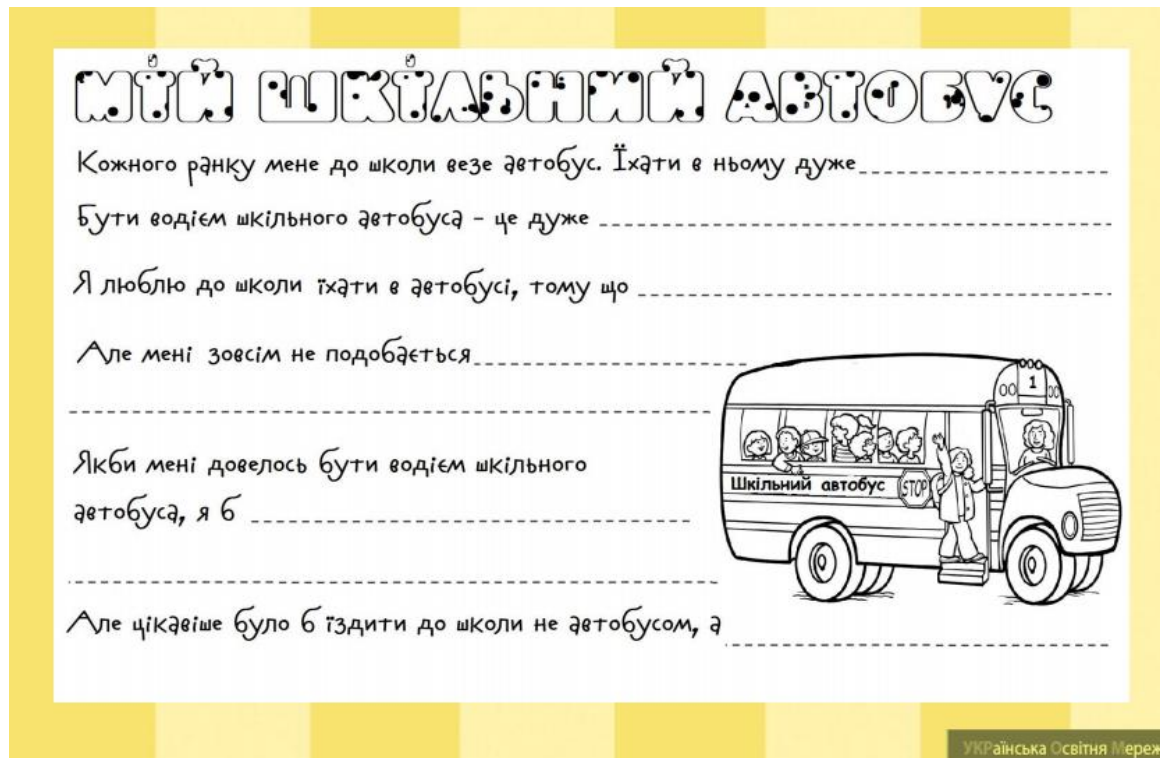 МІЙ ШКІЛЬНИЙ АВТОБУС
Кожного ранку мене до школи везе автобус. Їхати в ньому дуже
Бути водієм шкільного автобуса - це дуже
Я люблю до школи їхати в автобусі, тому що
Але мені зовсім не подобається
Якби мені довелось бути водієм шкільного
автобуса, я б
1
Шкільний автобус STOP
Але цікавіше було б їздити до школи не автобусом, а
УКРаїнська Освітня Мереж